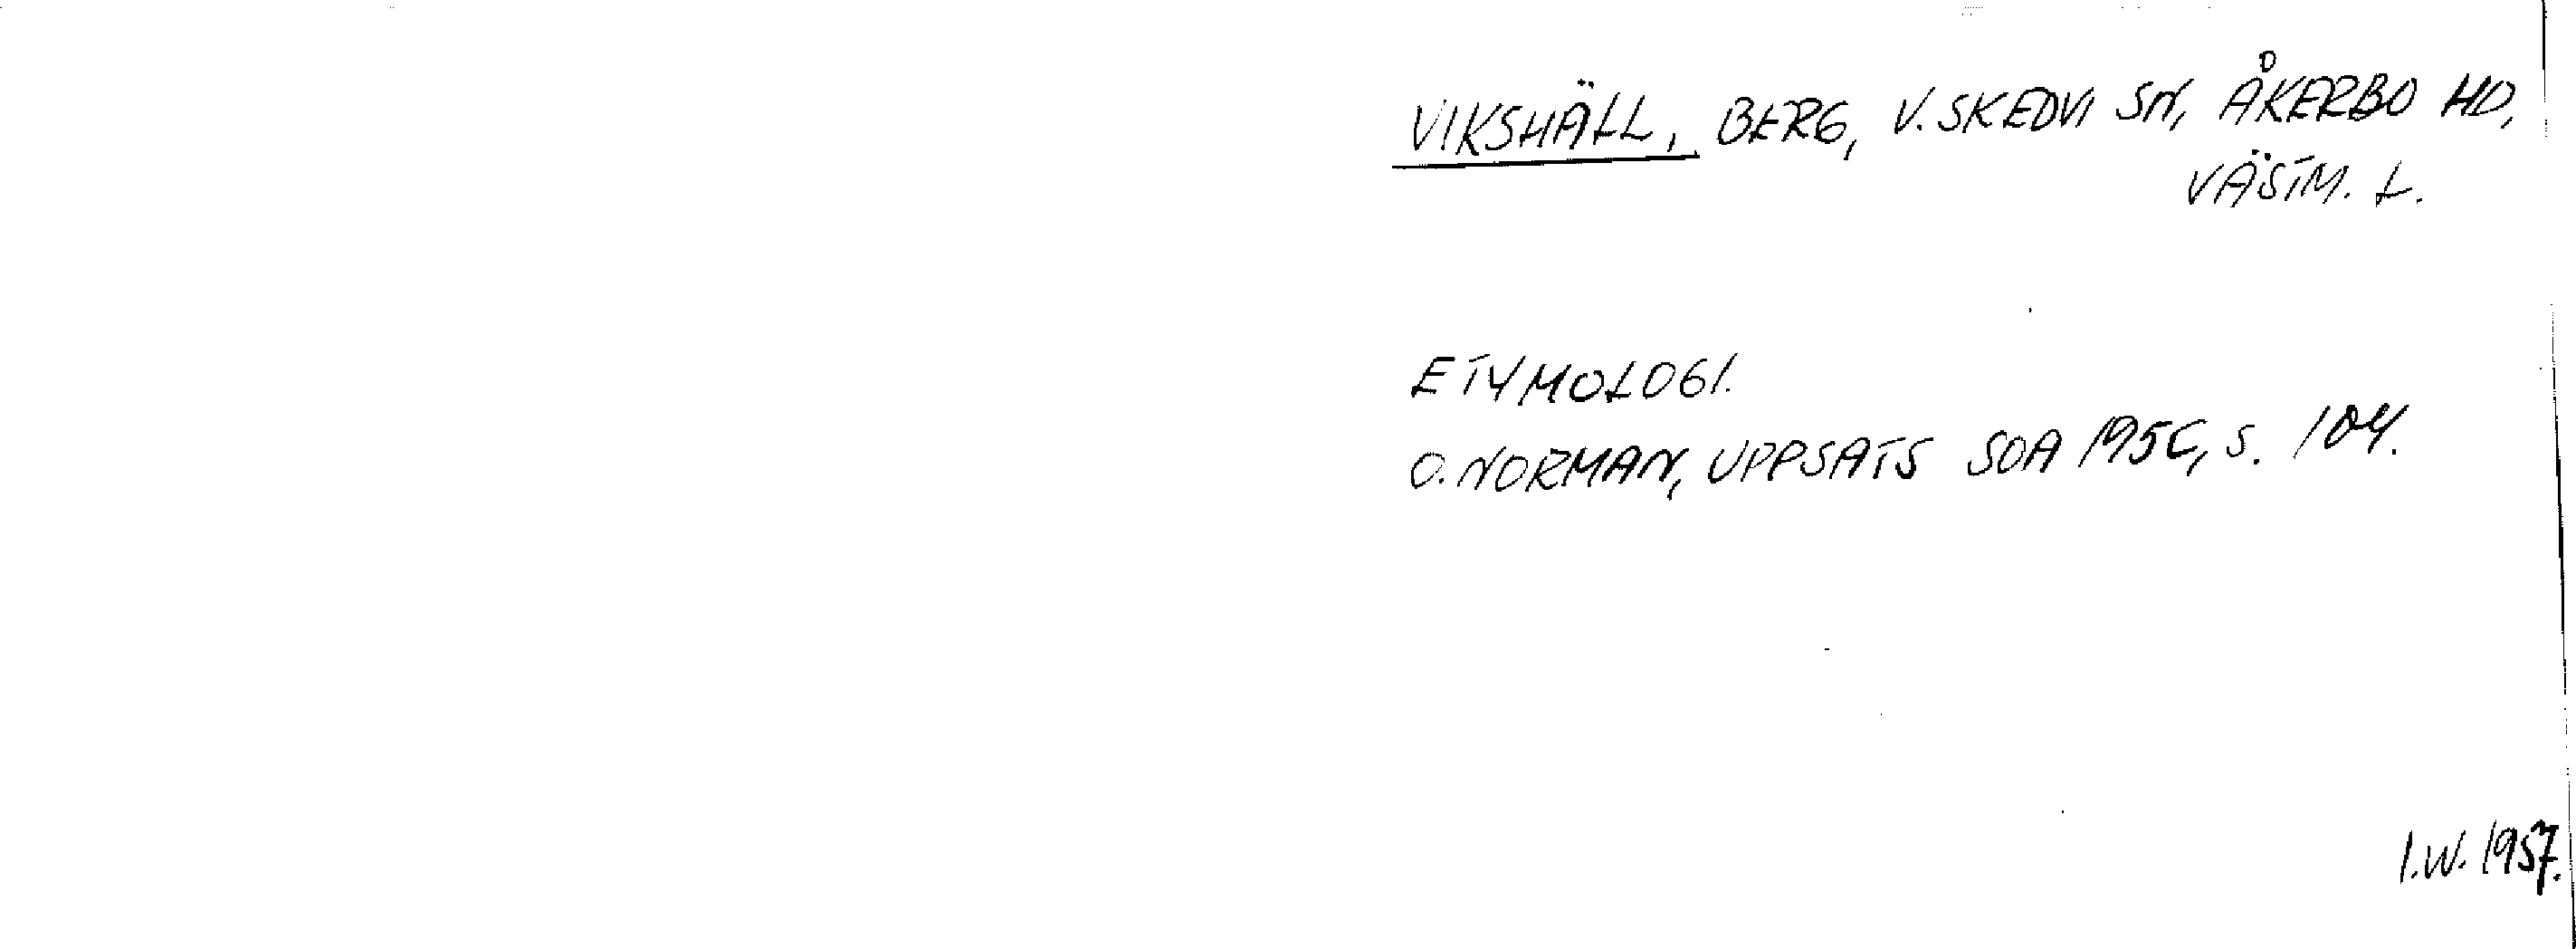 VIKSHÄLL, BERG, V. SKEDVI SN, ÅKERBO HD,
VÄSTM. L.
ETYMOLOGI.
O. NORMAN, UPPSATS SOA 1956, S. 104.
I.W. 1957.